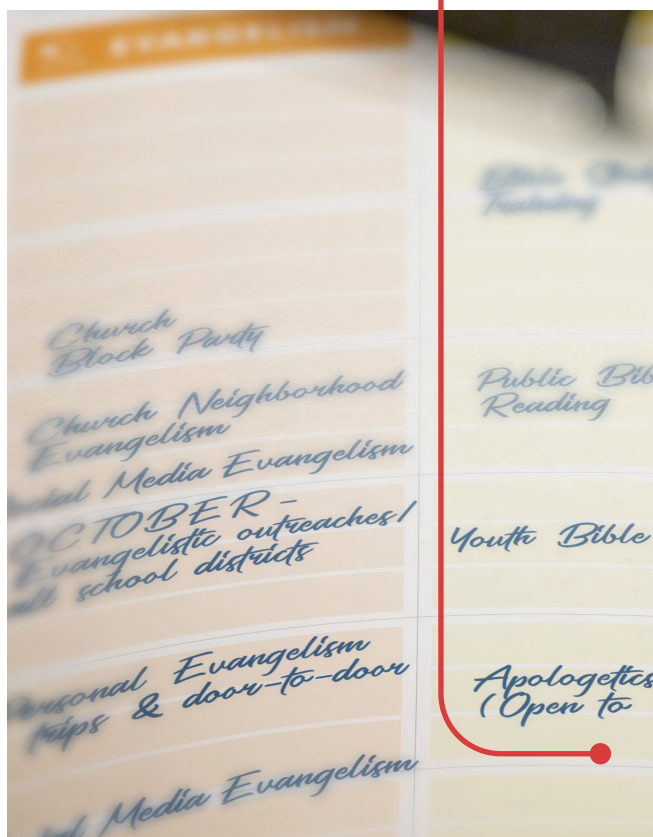 EVANGELISM
Church
Block Party
Church Neighborhood
Evangelism
Social Media Evangelism
OCTOBER -
Evangelistic outreaches/
all school districts
Personal Evangelism
trips & door-to-door
Media Evangelism
Bible
Training
Public Bib
Reading
Youth Bible
Apologetics
(Open to